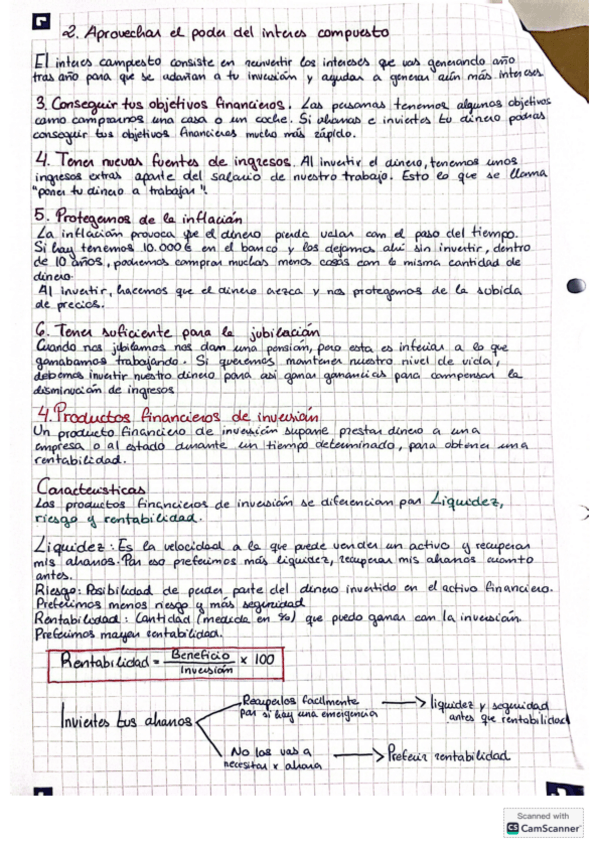 2. Aprovechar el poder del interes compuesto
El interes compuesto consiste en reinvertir los intereses que vas generando año
tras año para que se adañan a tu inversión y ayudan a generar aún más intereses
3. Conseguir tus objetivos financieros. Las personas tenemos algunos objetivos
como comprarnos una casa o un coche. Si ahorras e inviertes tu dinero podras
conseguir tus objetivos financieros mucho más rápido.
4. Tener nuevas fuentes de ingresos. Al invertir el dinero, tenemos unos
ingresos extras aparte del salario de nuestro trabajo. Esto lo que se llama
"poner tu dinero a trabajar".
5. Protegernos de la inflación
La inflación provoca que el dinero pierda valor con el paso del tiempo.
Si hay tenemos 10.000€ en el banco y los dejamos ahí sin invertir, dentro
de 10 años, podremos comprar muchas menos cosas con la misma cantidad de
dinero.
Al invertir, hacemos que el dinero crezca y nos protegemos de la subida
de precios.
6. Tener suficiente para la jubilación
Cuando nos jubilamos nos dan una pensión, pero esta es inferior a lo que
ganabamos trabajando. Si queremos mantener nuestro nivel de vida,
debemos invertir nuestro dinero para asi ganar ganancias para compensar la
disminución de ingresos
4. Productos financieros de inversión
Un producto financiero de inversión supone prestar dinero a una
empresa o al estado durante un tiempo determinado, para obtener una
rentabilidad.
Características
Los productos financieros de inversión se diferencian por Liquidez,
riesgo y rentabilidad.
Liquidez: Es la velocidad a la que puede vender un activo y recuperar
mis ahorros. Por eso preferimos más liquidez, recuperar mis ahorros cuanto
antes.
Riesgo: Posibilidad de perder parte del dinero invertido en el activo financiero.
Preferimos menos riesgo y más seguridad
Rentabilidad: Cantidad (medida en %) que puedo ganar con la inversión.
Preferimos mayor rentabilidad.
Rentabilidad = Beneficio / Inversión × 100
Inviertes tus ahorros
Recuperlos facilmente
por si hay una emergencia
liquidez y seguridad
antes que rentabilidad
No los vas a
necesitar x ahora
Preferir rentabilidad
Scanned with
CS CamScanner